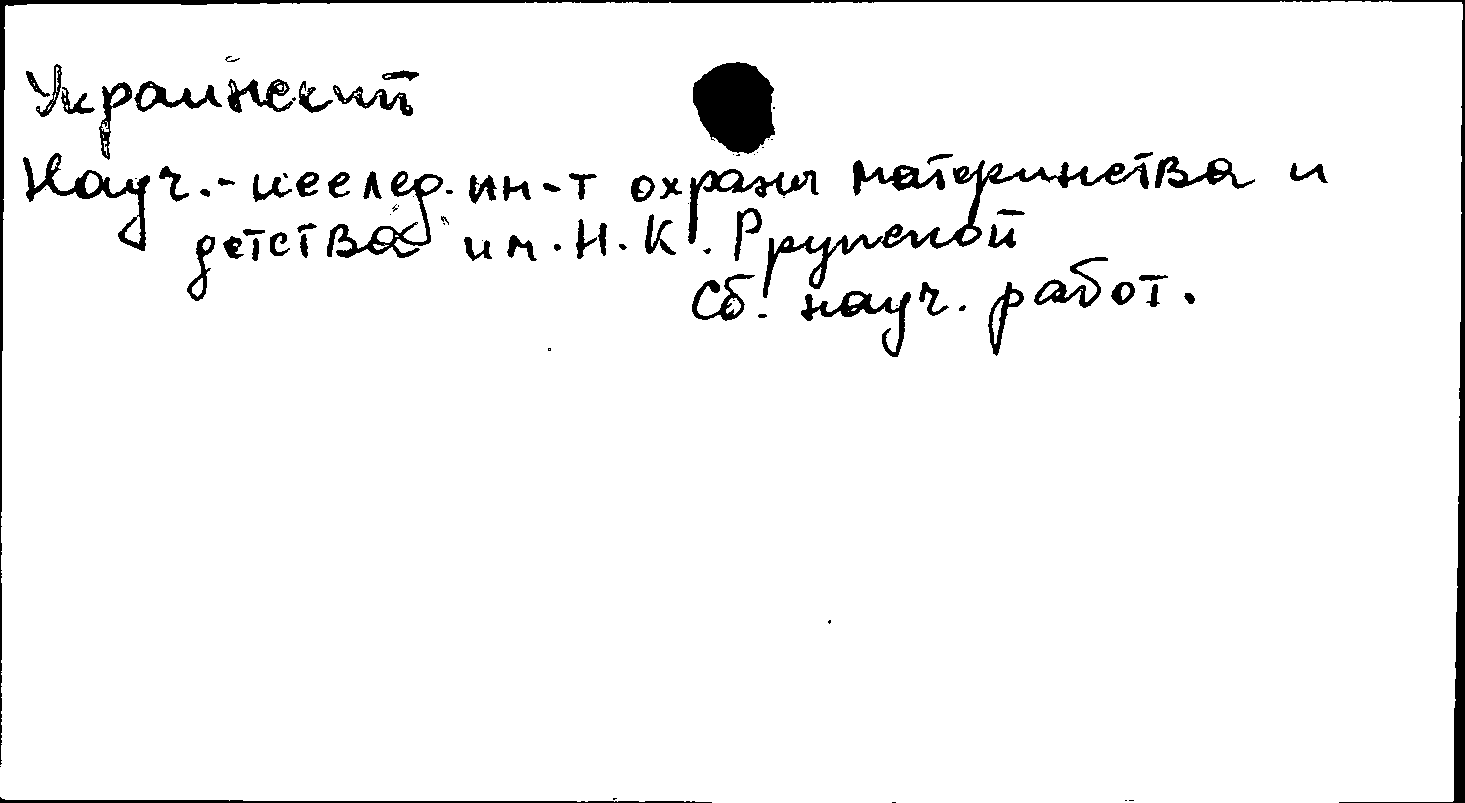 Украинский
Науч.-исслед. ин-т охраны материнства и
детства им. Н. К. Ррупской
Сб. науч. работ.